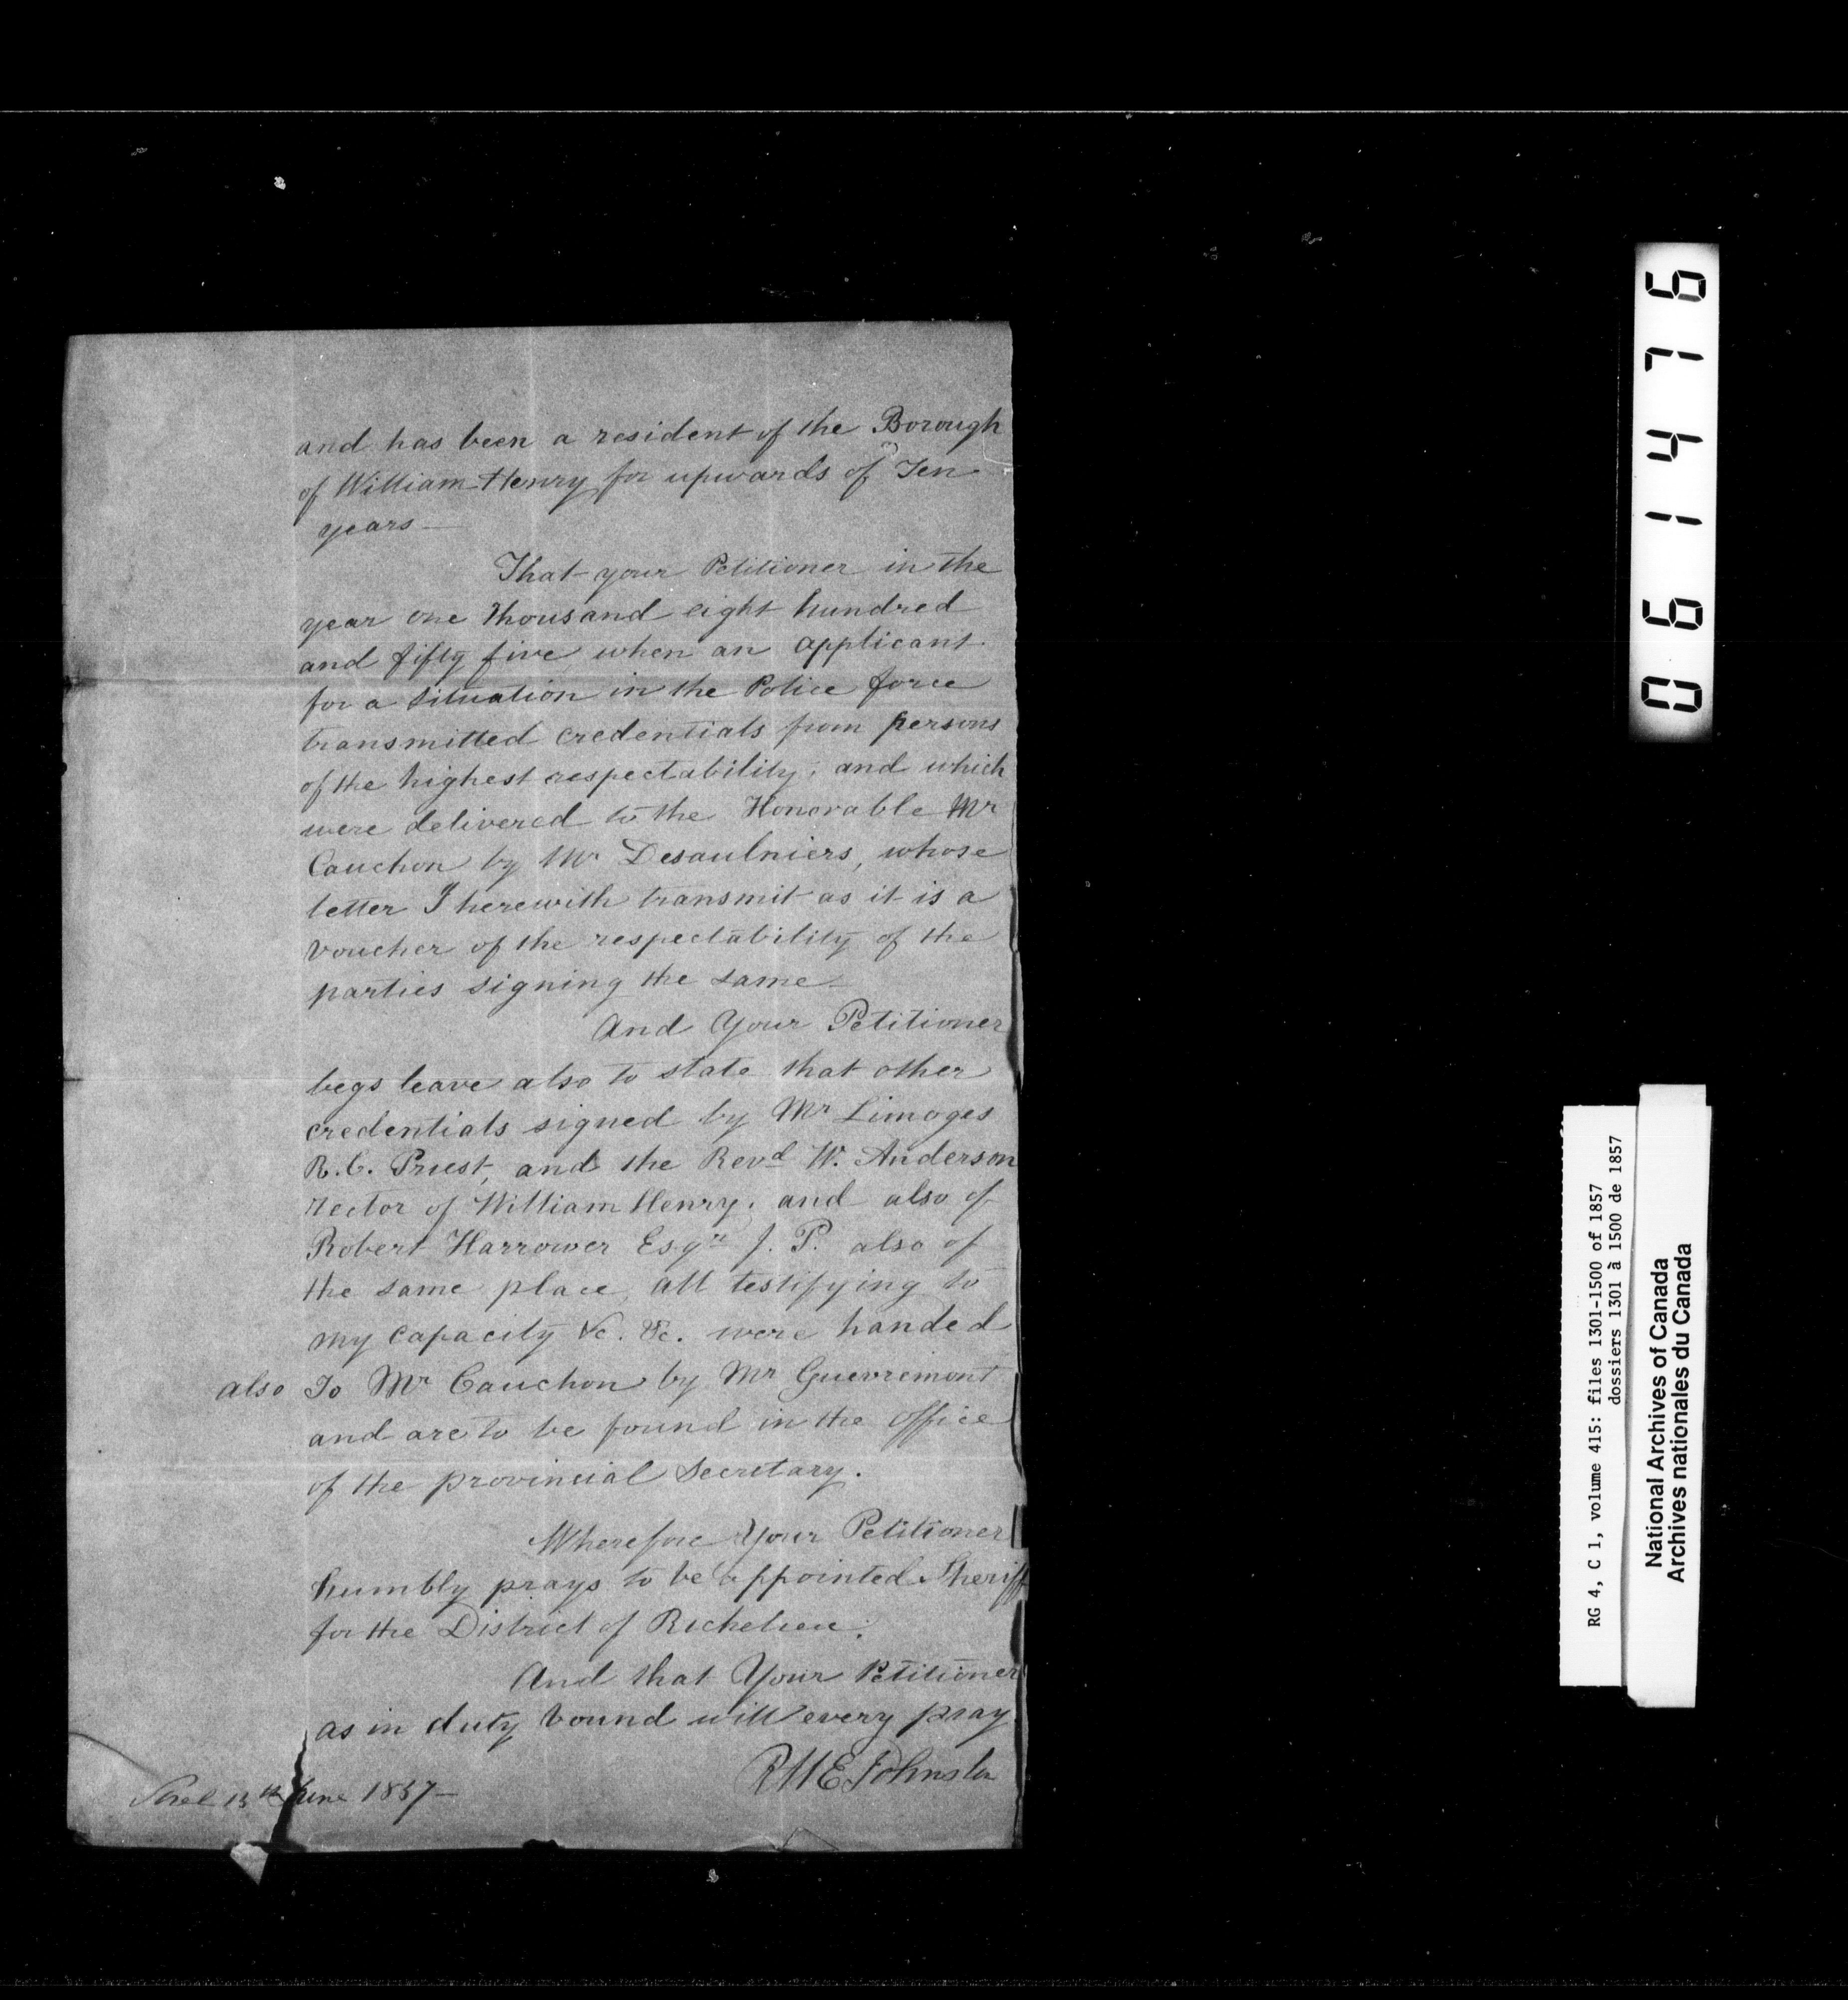 and has been a resident of the Borough
of William Henry for upwards of Ten
years —
That your Petitioner in the
year one thousand eight hundred
and fifty five when an applicant
for a situation in the Police force
transmitted credentials from persons
of the highest respectability, and which
were delivered to the Honorable Mr
Cauchon by Mr Desaulniers, whose
letter I herewith transmit as it is a
voucher of the respectability of the
parties signing the same —
And Your Petitioner
begs leave also to state that other
credentials signed by Mr Limoges
R.C. Priest, and the Revd W. Anderson
rector of William Henry, and also of
Robert Harrower Esqre J. P. also of
the same place, all testifying to
my capacity &c. &c. were handed
also To Mr Cauchon by Mr Guevremont
and are to be found in the office
of the provincial Secretary.
Wherefore Your Petitioner
humbly prays to be appointed Sheriff
for the District of Richelieu.
And that Your Petitioner
as in duty bound will every pray
Johnston
Sorel 13th June 1857 —
061476
RG 4, C 1, volume 415: files 1301-1500 of 1857
dossiers 1301 à 1500 de 1857
National Archives of Canada
Archives nationales du Canada